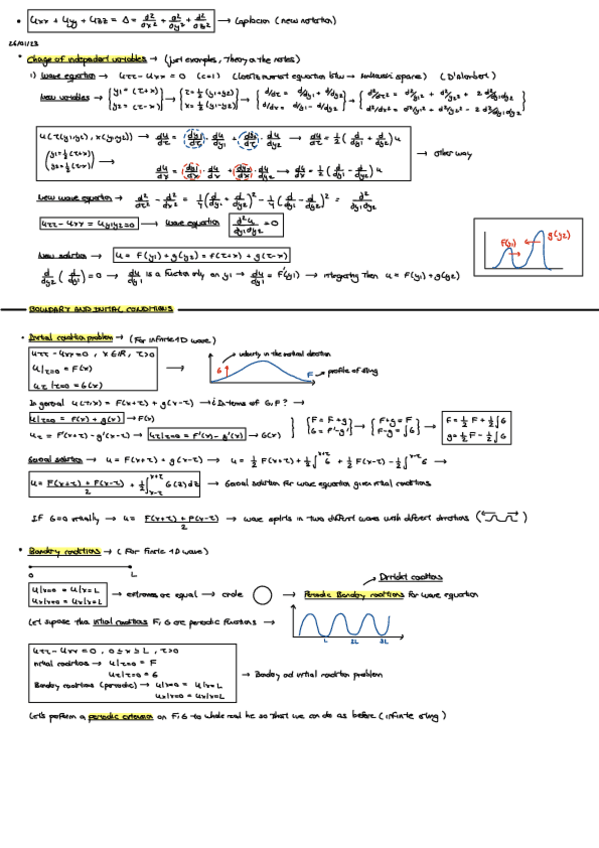 • Uxx + Uyy + Uzz = Δ = d²/dx² + d²/dy² + d²/dz² → Laplacian (new notation)
26/01/23
• Change of independent variables → (just examples, theory on the notes)
1) Wave equation → uττ - uxx = 0 (c=1) (D'Alembert)
New variables → { y1 = (τ+x) y2 = (τ-x) } → { τ = 1/2 (y1+y2) x = 1/2 (y1-y2) } → { d/dτ = d/dy1 + d/dy2 d/dx = d/dy1 - d/dy2 } → { d²/dτ² = d²/dy1² + d²/dy2² + 2 d²/dy1dy2 d²/dx² = d²/dy1² + d²/dy2² - 2 d²/dy1dy2
u(τ(y1,y2), x(y1,y2)) → du/dτ = dy1/dτ · du/dy1 + dy2/dτ · du/dy2 → du/dτ = 1/2 ( d/dy1 + d/dy2 ) u
( y1 = 1/2 (τ+x) y2 = 1/2 (τ-x) ) → → other way
du/dx = dy1/dx · du/dy1 + dy2/dx · du/dy2 → du/dx = 1/2 ( d/dy1 - d/dy2 ) u
New wave equation → d²/dτ² - d²/dx² = 1/4 ( d/dy1 + d/dy2 )² - 1/4 ( d/dy1 - d/dy2 )² = d²/dy1dy2
uττ - uxx = uy1y2 = 0 → wave equation d²u/dy1dy2 = 0
F(y1) g(y2)
New solution → u = F(y1) + g(y2) = F(τ+x) + g(τ-x)
d/dy2 ( d/dy1 ) = 0 → du/dy1 is a function only on y1 → du/dy1 = F'(y1) → integrating then u = F(y1) + g(y2)
BOUNDARY AND INITIAL CONDITIONS
• Initial condition problem → (For infinite 1D wave)
uττ - uxx = 0, x∈ℝ, τ>0
u|τ=0 = F(x) →
uτ|τ=0 = G(x)
→ velocity in the vertical direction
G F → profile of string
In general u(τ,x) = F(x+τ) + g(x-τ) → ¿In terms of G,F? →
u|τ=0 = F(x) + g(x) → F(x)
uτ = F'(x+τ) - g'(x-τ) → uτ|τ=0 = F'(x) - g'(x) → G(x)
{ F = F + g G = F' - g' } → { F+g = F F-g = ∫G } → F = 1/2 F + 1/2 ∫G g = 1/2 F - 1/2 ∫G
General solution → u = F(x+τ) + g(x-τ) → u = 1/2 F(x+τ) + 1/2 ∫^x+τ G + 1/2 F(x-τ) - 1/2 ∫^x-τ G →
u = F(x+τ) + F(x-τ) / 2 + 1/2 ∫_x-τ^x+τ G(z)dz → General solution for wave equation given initial conditions
If G=0 initially → u = F(x+τ) + F(x-τ) / 2 → wave splits in two different waves with different directions
• Boundary conditions → (For finite 1D wave)
0 L
→ Dirichlet conditions
u|x=0 = u|x=L
ux|x=0 = ux|x=L → extremes are equal → circle → Periodic Boundary conditions for wave equation
Let supose tha initial conditions F, G are periodic functions →
L 2L 3L
uττ - uxx = 0, 0≤x≤L, τ>0
Initial conditions → u|τ=0 = F
uτ|τ=0 = G → Boundary and initial condition problem
Boundary conditions (periodic) → u|x=0 = u|x=L
ux|x=0 = ux|x=L
Let's perform a periodic extension on F, G to whole real line so that we can do as before (infinite string)